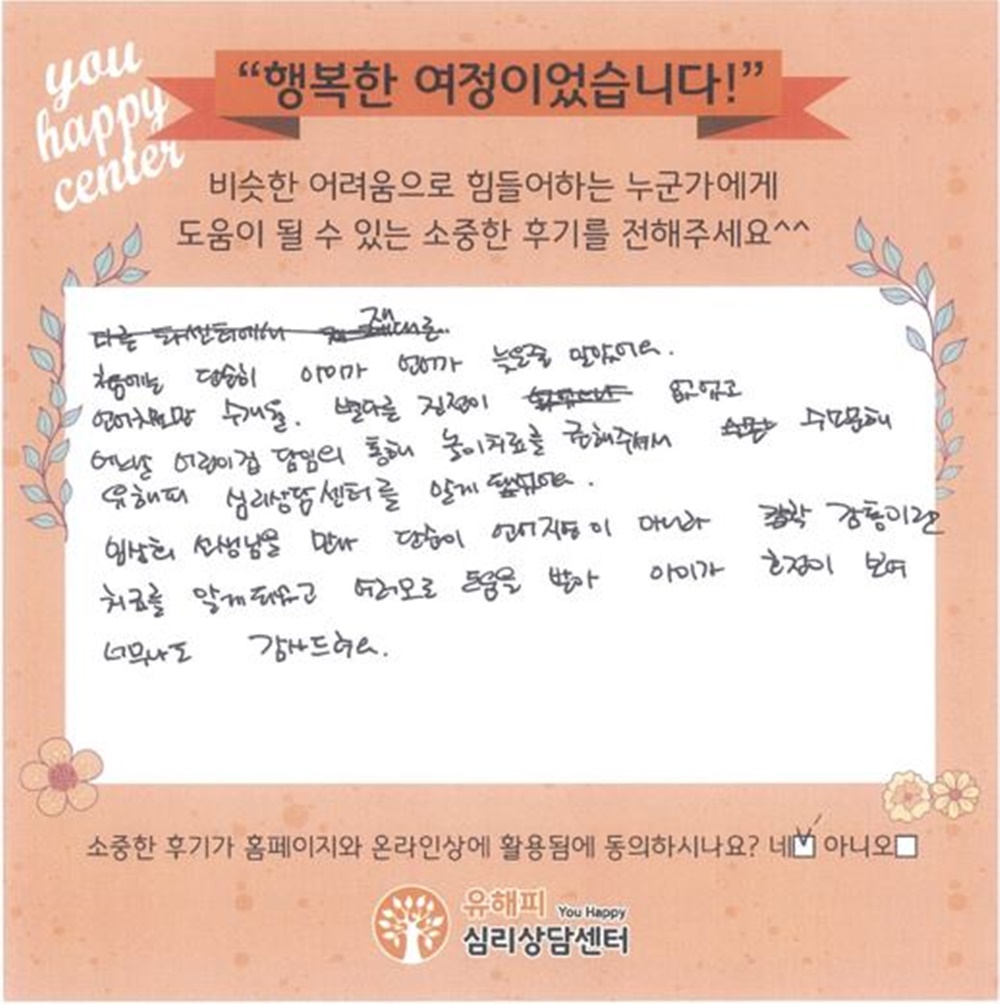 you
happy
center
“행복한 여정이었습니다!”
비슷한 어려움으로 힘들어하는 누군가에게
도움이 될 수 있는 소중한 후기를 전해주세요^^
다른 타센터에서 제대로..
처음에는 단순히 아이가 언어가 늦은줄 알았어요.
언어치료만 수개월. 별다를 진전이 없었고
어느날 어린이집 담임의 통해 놀이치료를 권해주셔서 수소문해
유해피 심리상담센터를 알게 됐어요.
임상희 선생님을 만나 단순이 언어지연이 아니라 감각 강통이란
치료를 알게되었고 여러모로 도움을 받아 아이가 호전이 보여
너무나도 감사드려요.
소중한 후기가 홈페이지와 온라인상에 활용됨에 동의하시나요? 네 아니오
유해피 You Happy
심리상담센터